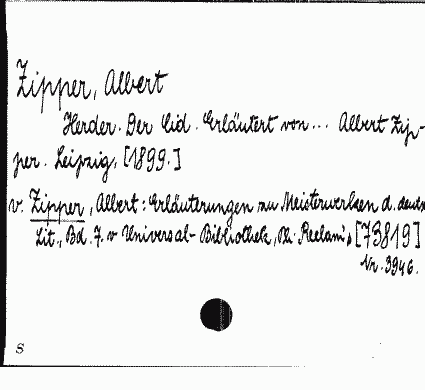 Zipper, Albert
Herder. Der Cid. Erläutert von... Albert Zip-
per. Leipzig, [1899.]
v. Zipper, Albert: Erläuterungen zu Meisterwerken d. deuts
Lit., Bd. 7. v Universal-Bibliothek, Ph. Reclam's [73819]
Nr. 3946.
S